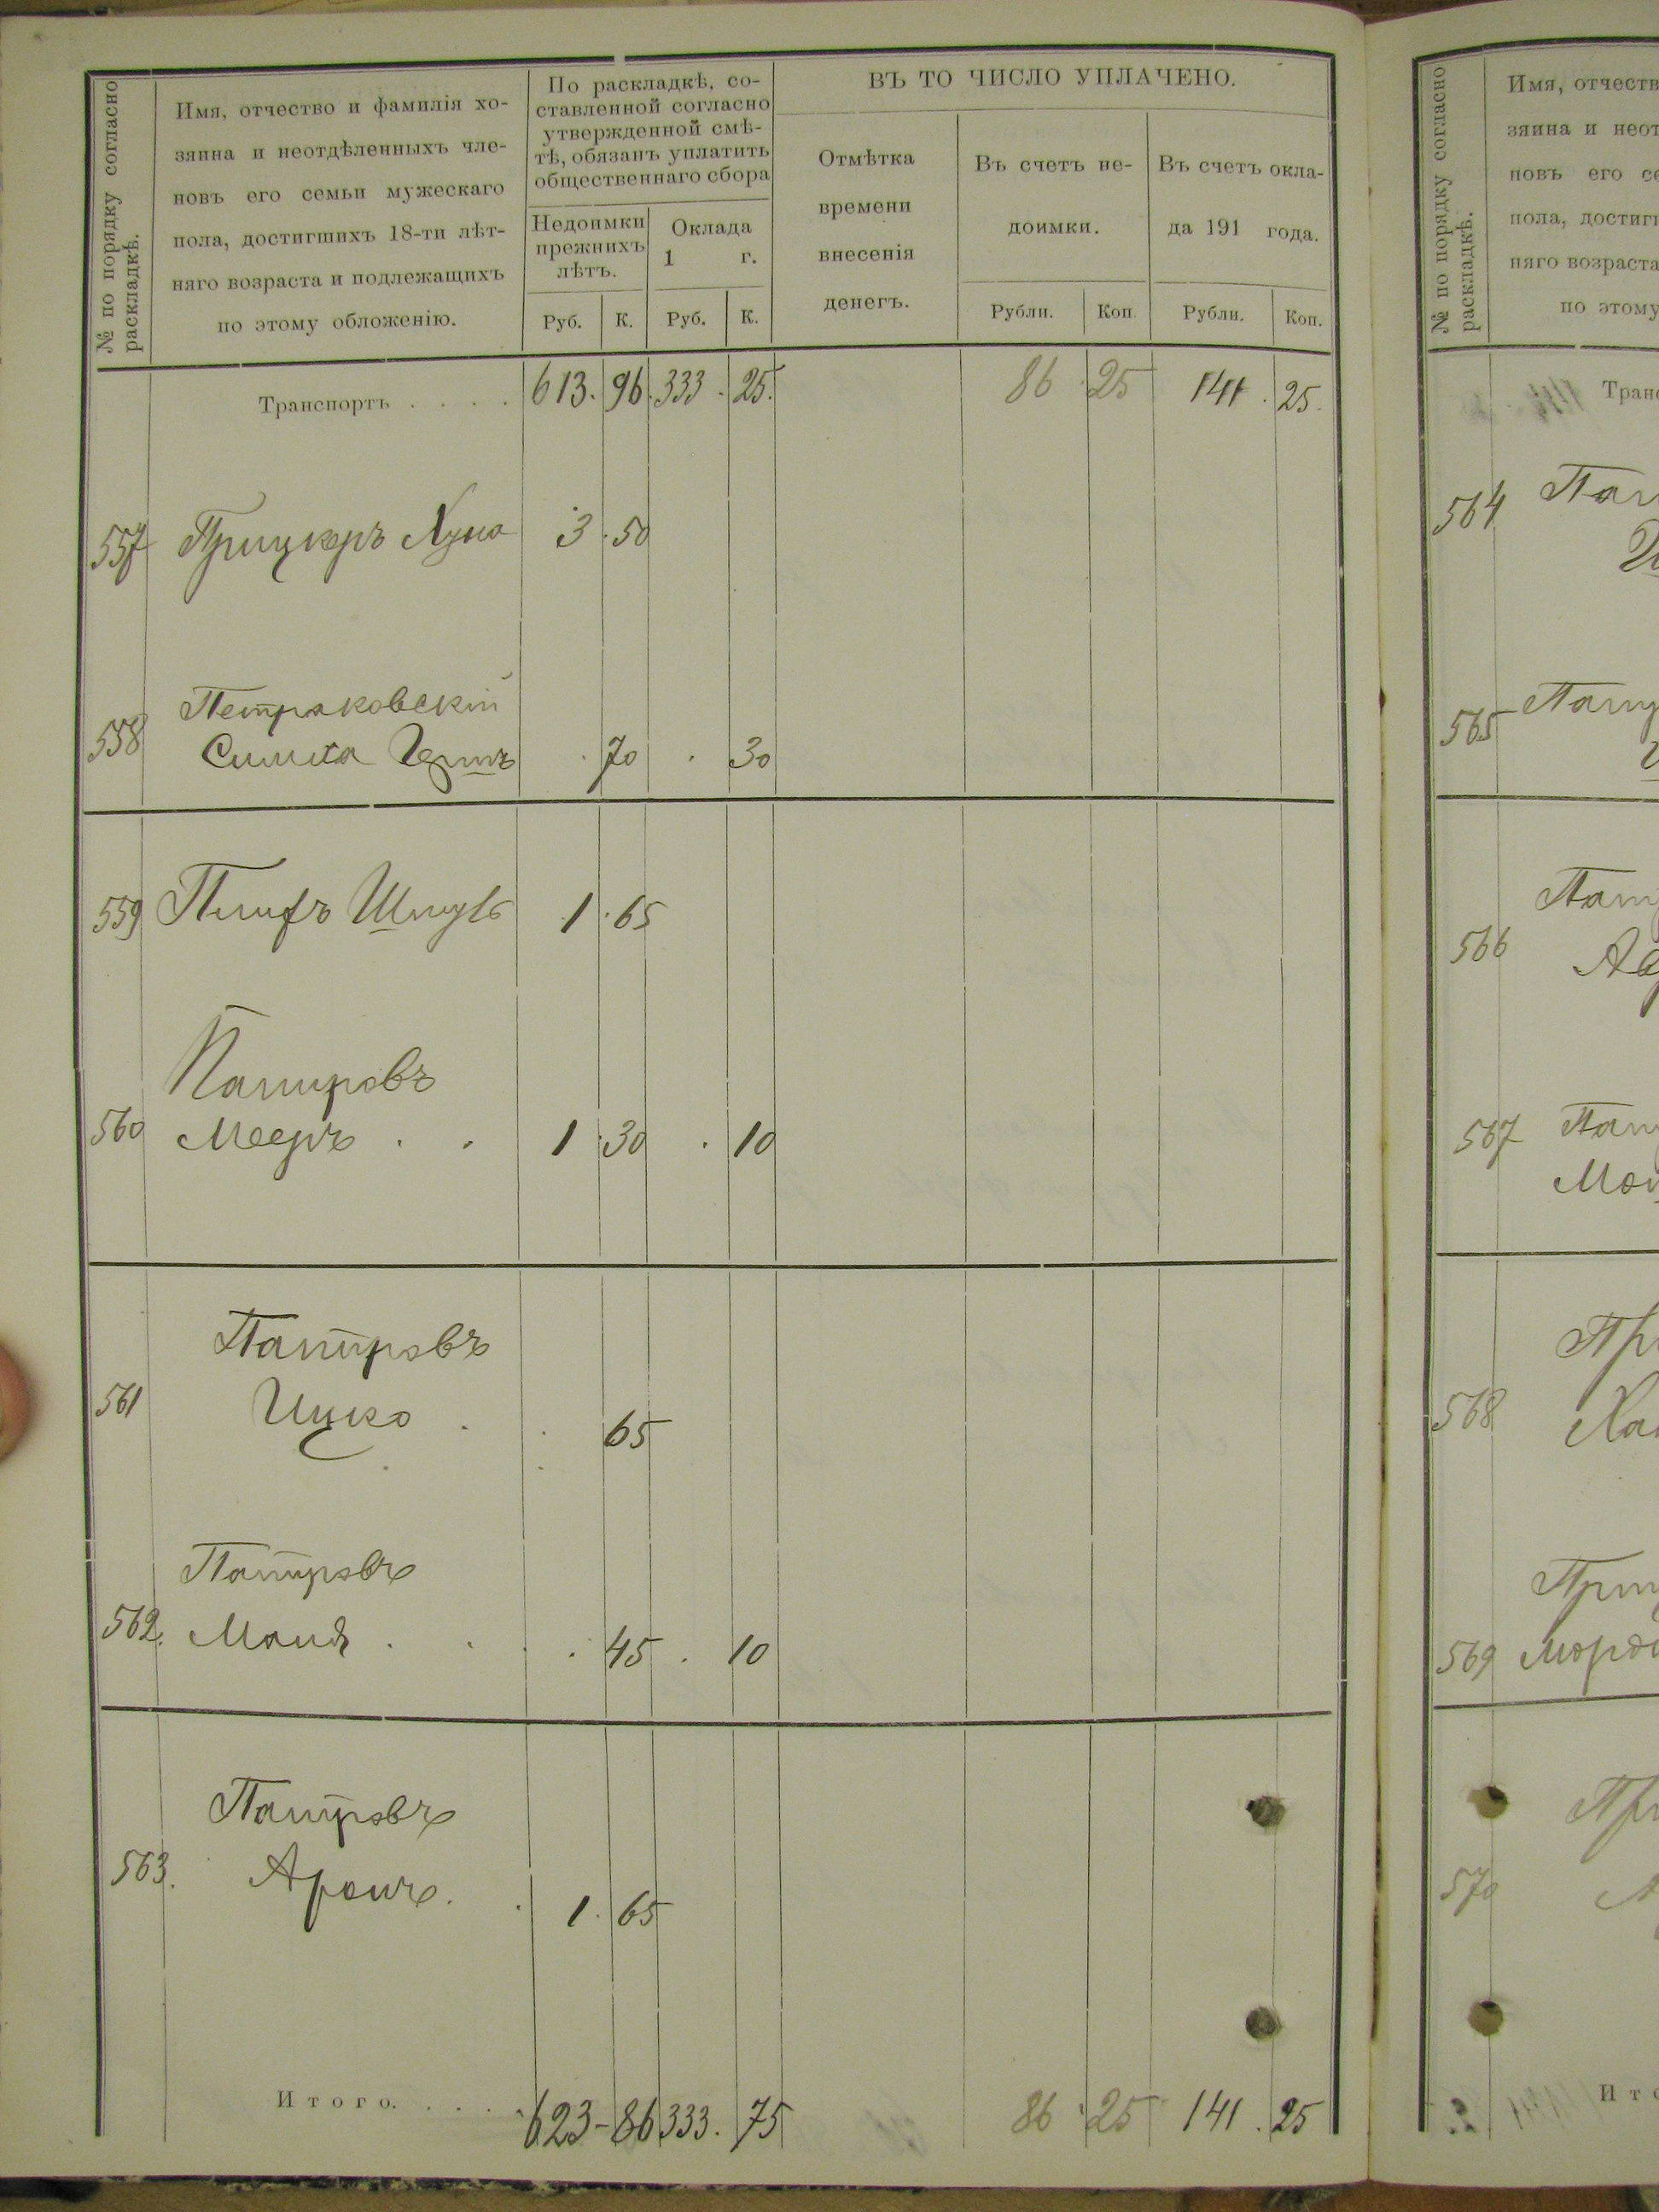 № по порядку согласно
раскладкѣ.
Имя, отчество и фамилія хо-
зяина и неотдѣленныхъ чле-
новъ его семьи мужескаго
пола, достигшихъ 18-ти лѣт-
няго возраста и подлежащихъ
по этому обложенію.
По раскладкѣ, со-
ставленной согласно
утвержденной смѣ-
тѣ, обязанъ уплатить
общественнаго сбора
Недоимки
прежнихъ
лѣтъ.
Оклада
1 г.
Руб. К. Руб. К.
ВЪ ТО ЧИСЛО УПЛАЧЕНО.
Отмѣтка
времени
внесенія
денегъ.
Въ счетъ не-
доимки.
Рубли. Коп.
Въ счетъ окла-
да 191 года.
Рубли. Коп.
Транспортъ . . . . 613. 96. 333 . 25. 86 . 25 141 . 25.
557 Прицкеръ Хуна 3 . 50
Петраковскій
558 Симха Гершъ . 70 . 30
559 Шмуль 1 . 65
Папировъ
560 Мееръ . . 1 . 30 . 10
Папировъ
561 Ицко . . 65
Папировъ
562. . . . 45 . 10
Папировъ
563. Аронъ. . 1. 65
Итого. . . . . 623 - 86 333. 75 86 . 25 141 . 25
№ по порядку согласно
раскладкѣ.
Имя, отчеств
зяина и неот
новъ его се
пола, достиг
няго возраста
по этому
Тран
564
565
566
567
568
569
570
Ито